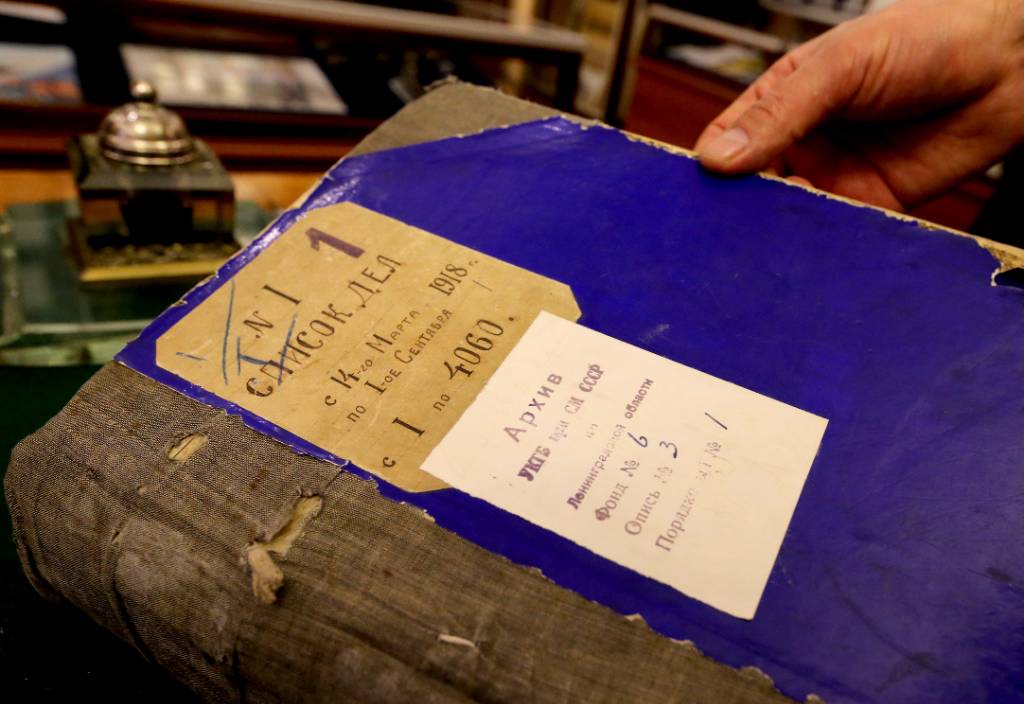 1
N I
I
СПИСОК ДЕЛ
с 14-го Марта
по 1-ое Сентября 1918 г.
с I по 4060.
Архив
УКГБ при СМ СССР
по
Ленинградской области
Фонд № 6
Опись № 3
№ 1